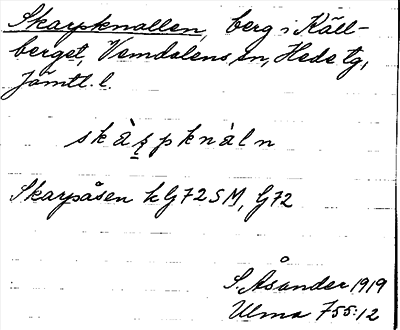 Skarpknallen, berg i Käll-
berget, Vemdalens sn, Hede tg,
Jämtl. l.
skàʂpknàln
Skarpåsen k G72SM, G72
S. Åsander 1919
Ulma 755:12